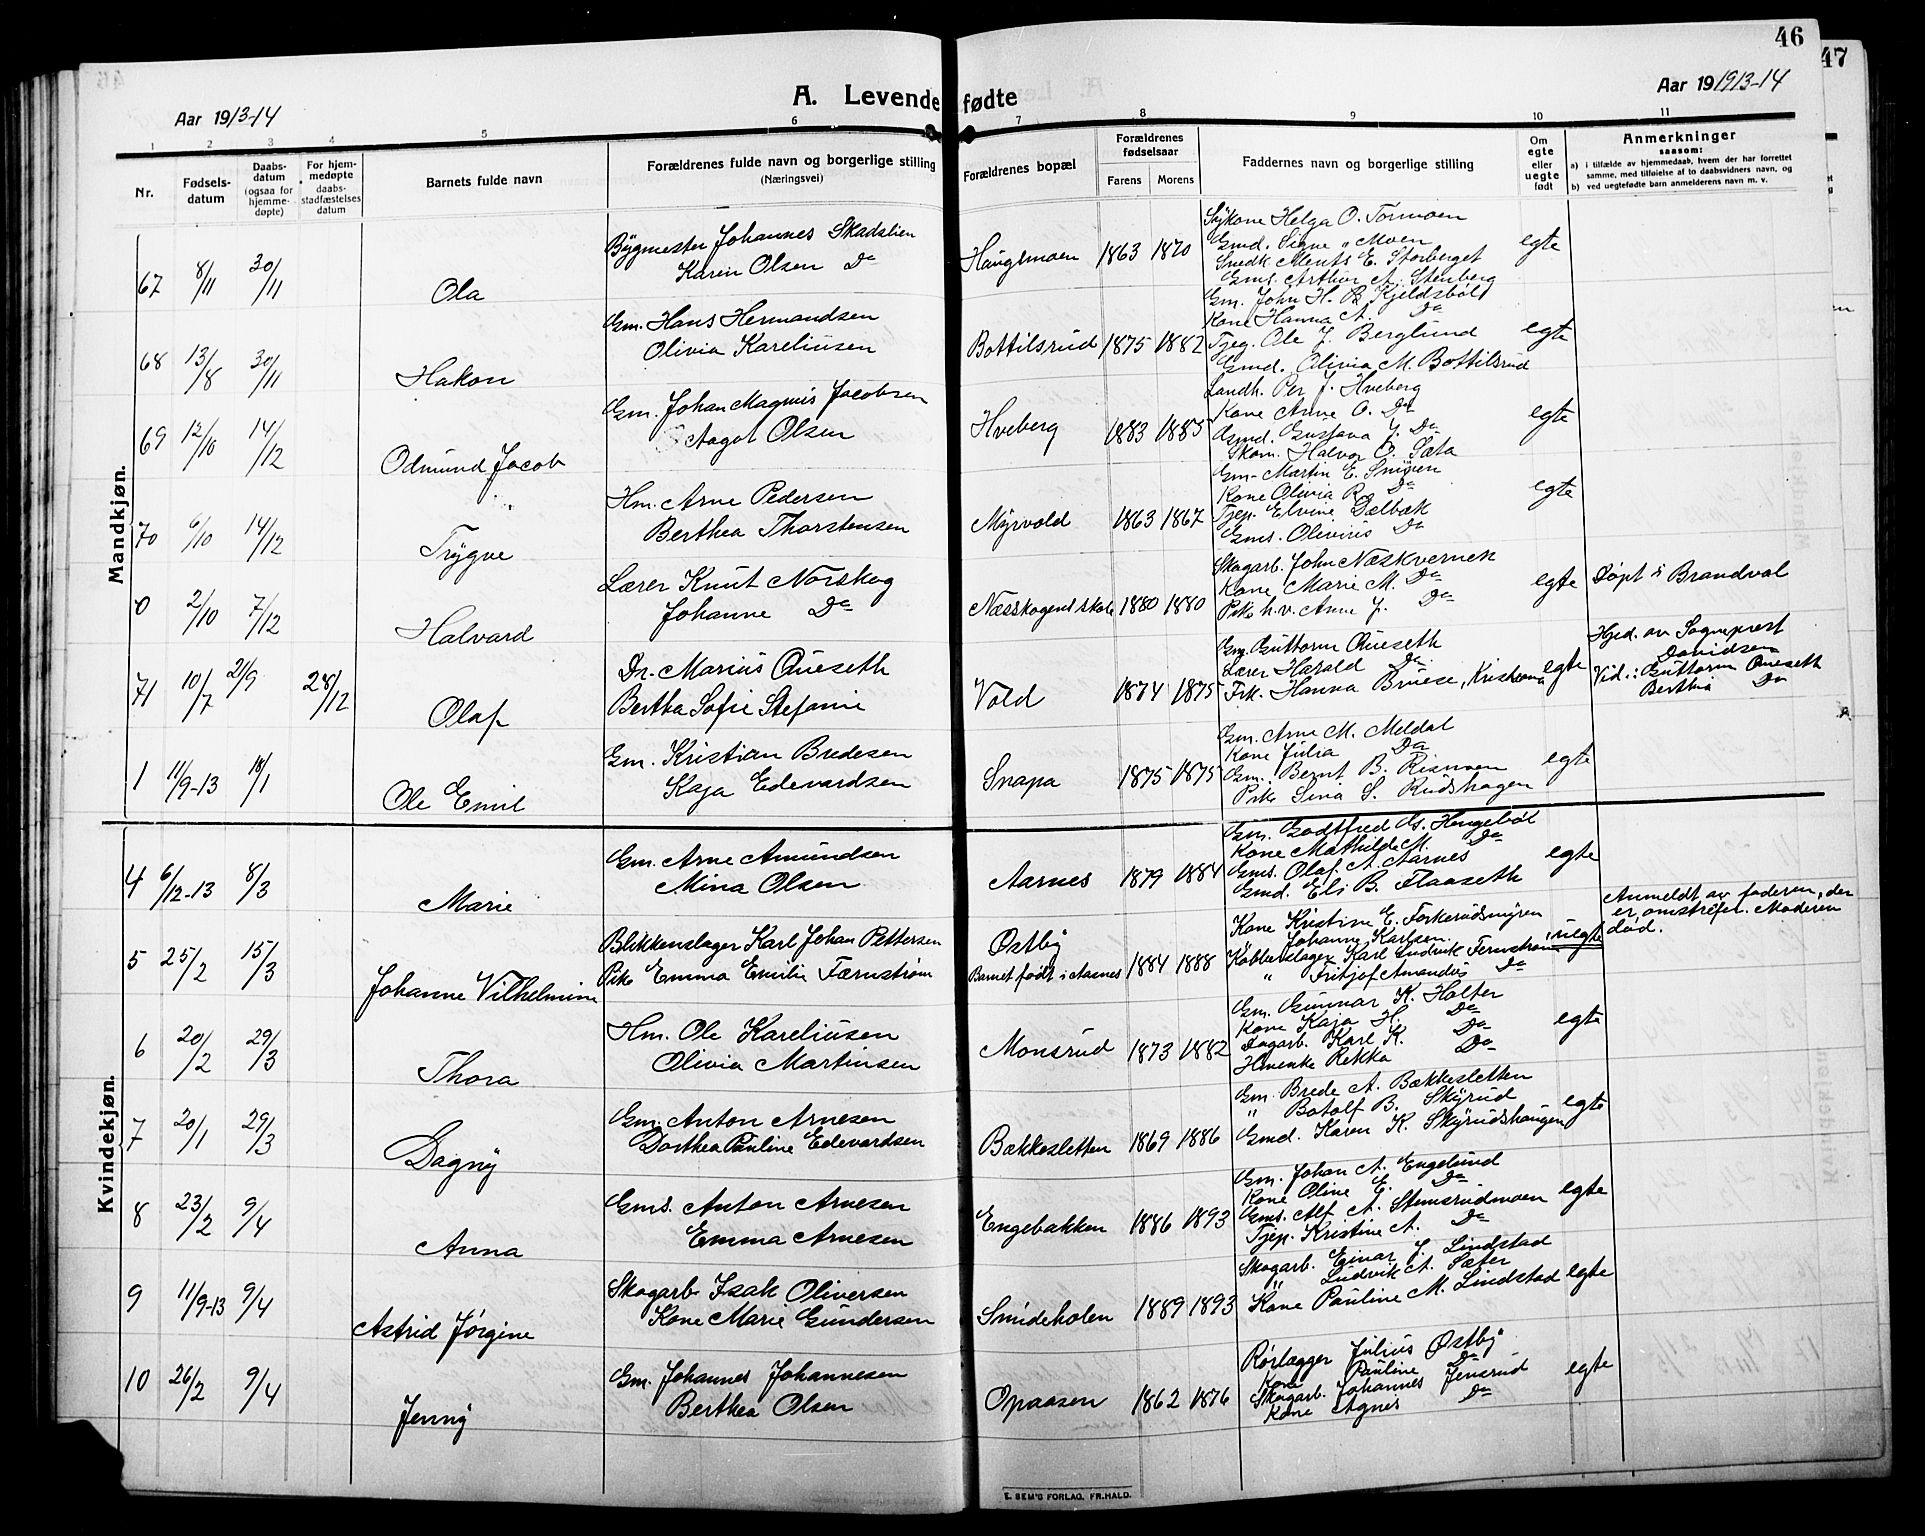 46
47
A. Levende fødte
Aar 1913-14
Aar 191913-14
1 2 3 4 5 6 7 8 9 10 11
Nr.
Fødsels-
datum
Daabs-
datum
(ogsaa for
hjemme-
døpte)
For hjem-
medøpte
daabs-
stadfæstelses
datum
Barnets fulde navn
Forældrenes fulde navn og borgerlige stilling
(Næringsvei)
Forældrenes bopæl
Forældrenes
fødselsaar
Farens Morens
Faddernes navn og borgerlige stilling
Om
egte
eller
uegte
født
Anmerkninger
saasom:
a) i tilfælde av hjemmedaab, hvem der har forrettet
samme, med tilføielse af to daabsvidners navn, og
b) ved uegtefødte barn anmelderens navn m. v.
Mandkjøn.
67 8/11 30/11 Ola
Bygmester Johannes Skadslien
Karin Olsen Do
Haugsmoen 1863 1870
Sykone Helga O. Tormoen
Gmd. Signe " Moen
Snedk Ments E. Storberget
Gms. Arthur A. Stenberg
egte
68 13/8 30/11 Hakon
Gm. Hans Hermandsen
Olivia Kareliusen
Bottilsrud 1875 1882
Gm. John H. B. Kjeldsbøl
Kone Hanna A. Do
Tjeg. Ole J. Berglund
Gmd. Olivia M. Bottilsrud
egte
69 12/10 14/12 Odmund Jacob
Gm. Johan Magnus Jacobsen
Aagot Olsen
Hveberg 1883 1885
Landh. Per J. Hveberg
Kone Anne O. Do
Gmd. Gustava J. Do
Skom. Halvor O. Sæta
egte
70 6/10 14/12 Trygve
Hm. Arne Pedersen
Berthea Thorstensen
Myrvold 1863 1867
Gm. Martin E. Snipen
Kone Olivia R. Do
Tjep. Elvine Dælbæk
Gms. Olivius Do
egte
0 2/10 7/12 Halvard
Lærer Knut Norskog
Johanne Do
Næsskogens skole 1880 1880
Skogarb. John Næskvernen
Kone Marie M. Do
Pike h.v. Anne J. Do
egte
Døpt i Brandval
71 10/7 21/9 28/12 Olaf
Dr. Marius Queseth
Bertha Sofie Stefanie
Vold 1874 1875
Gm. Guttorm Queseth
Lærer Harald Do
Frk. Hanna Bruese, Kristiania
egte
Hjd. av Sogneprest
Davidsen
Vid.: Guttorm Queseth
Berthia Do
1 11/9-13 18/1 Ole Emil
Gm. Kristian Bredesen
Kaja Edevardsen
Snapa 1875 1875
Gm. Arne M. Meldal
Kone Julia Do
Gm. Bernt B. Rismoen
Pike Sina S. Rudshagen
egte
Kvindekjøn.
4 6/12-13 8/3 Marie
Gm. Arne Amundsen
Mina Olsen
Aarnes 1879 1884
Gm. Godtfred As. Hengebøl
Kone Mathilde M. Do
Gms. Olaf A. Aarnes
Gmd. Eli B. Flaaseth
egte
5 25/2 15/3 Johanne Vilhelmine
Blikkenslager Karl Johan Pettersen
Pike Emma Emilie Færnstrøm
Østby
Barnet født i Aarnes 1884 1888
Kone Kristine E. Forkerudsmyren
Johanne Karlsen
Kobberslager Karl Ludvik Fernstrøm
" Fritjof Amandus Do
uegte
Anmeldt av faderen, der
er omstreifer. Moderen
død.
6 20/2 29/3 Thora
Hm. Ole Kareliusen
Olivia Martinsen
Monsrud 1873 1882
Gm. Gunnar K. Holter
Kone Kaja H. Do
Dagarb. Karl K. Do
Hvenke Rekka Do
egte
7 20/1 29/3 Dagny
Gm. Anton Arnesen
Dorthea Pauline Edevardsen
Bækkesletten 1869 1886
Gm. Brede A. Bækkesletten
" Botolf B. Skyrud
Gmd. Karen K. Skyrudshaugen
egte
8 23/2 9/4 Anna
Gms. Anton Arnesen
Emma Arnesen
Engebakken 1886 1893
Gm. Johan A. Engelund
Kone Oline E. Do
Gms. Alf A. Stemsrudmoen
Tjep. Kristine A. Do
egte
9 11/9-13 9/4 Astrid Jørgine
Skogarb. Isak Oliversen
Kone Marie Gundersen
Smideholen 1889 1893
Skogarb. Einar J. Lindstad
" Ludvik A. Sæter
Kone Pauline M. Lindstad
egte
10 26/2 9/4 Jenny
Gm. Johannes Johannesen
Berthea Olsen
Opaasen 1862 1876
Rørlægger Julius Østby
Kone Pauline Do
Skogarb. Johannes Jensrud
Kone Agnes Do
egte
E. SEM'S FORLAG, FR.HALD.